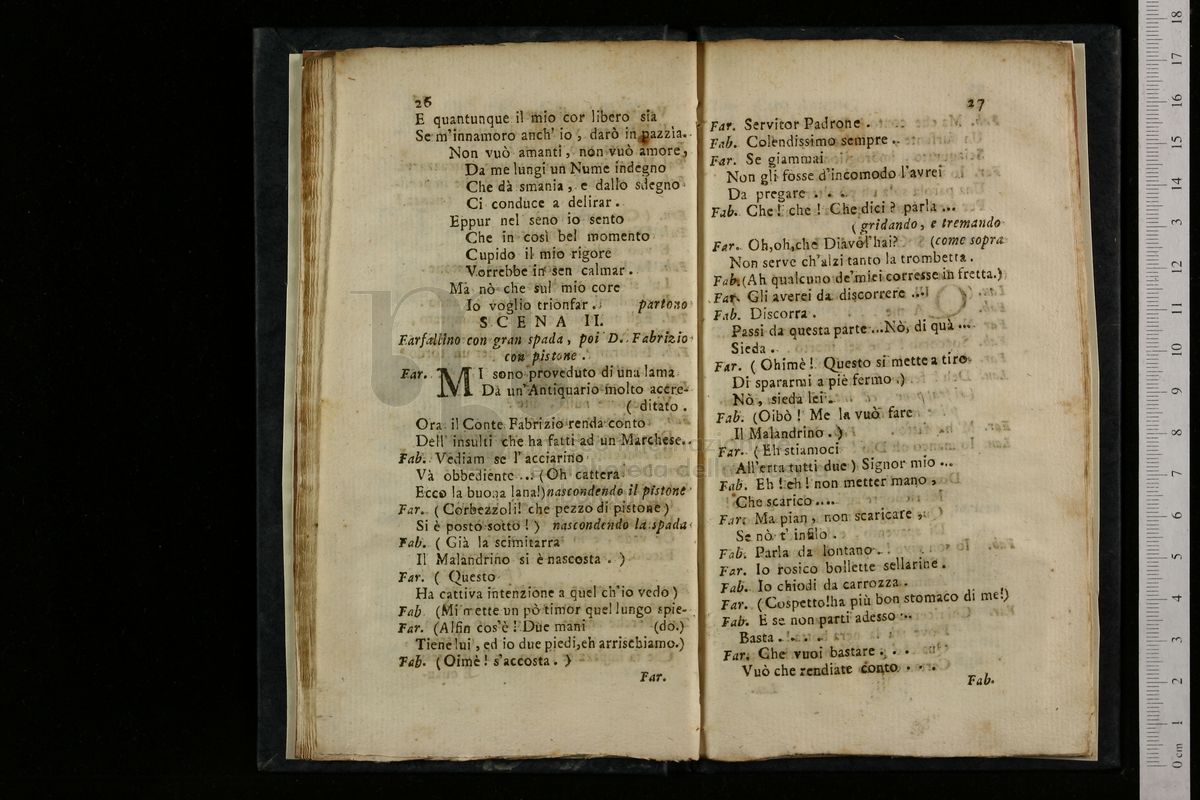 26
E quantunque il mio cor libero sia
Se m'innamoro anch' io, darò in pazzia.
Non vuò amanti, non vuò amore,
Da me lungi un Nume indegno
Che dà smania, e dallo sdegno
Ci conduce a delirar.
Eppur nel seno io sento
Che in così bel momento
Cupido il mio rigore
Vorrebbe in sen calmar.
Ma nò che sul mio core
Io voglio trionfar. partono
SCENA II.
Farfallino con gran spada, poi D. Fabrizio
con pistone.
Far. MI sono proveduto di una lama
Da un'Antiquario molto accre-
( ditato.
Ora il Conte Fabrizio renda conto
Dell' insulti che ha fatti ad un Marchese.
Fab. Vediam se l'acciarino
Và obbediente ... (Oh cattera
Ecco la buona lana!) nascondendo il pistone
Far. ( Corbezzoli! che pezzo di pistone)
Si è posto sotto! ) nascondendo la spada
Fab. ( Già la scimitarra
Il Malandrino si è nascosta. )
Far. ( Questo
Ha cattiva intenzione a quel ch'io vedo)
Fab (Mi mette un pò timor quel lungo spie-
Far. (Alfin cos'è! Due mani (do.)
Tiene lui, ed io due piedi, eh arrischiamo.)
Fab. (Oimè! s'accosta. )
Far.
27
Far. Servitor Padrone.
Fab. Colendissimo sempre.
Far. Se giammai
Non gli fosse d'incomodo l'avrei
Da pregare . . .
Fab. Che! che! Che dici? parla ...
( gridando, e tremando
Far. Oh, oh, che Diavol'hai? (come sopra
Non serve ch'alzi tanto la trombetta.
Fab. (Ah qualcuno de'miei corresse in fretta.)
Far. Gli averei da discorrere ...
Fab. Discorra.
Passi da questa parte ... Nò, di quà ...
Sieda.
Far. ( Ohimè! Questo si mette a tiro
Di spararmi a piè fermo.)
Nò, sieda lei.
Fab. (Oibò! Me la vuò fare
Il Malandrino. )
Far. ( Eh stiamoci
All'erta tutti due ) Signor mio ...
Fab. Eh! eh! non metter mano,
Che scarico ....
Far. Ma pian, non scaricare,
Se nò t' infilo.
Fab. Parla da lontano.
Far. Io rosico bollette sellarine.
Fab. Io chiodi da carrozza.
Far. (Cospetto! ha più bon stomaco di me!)
Fab. E se non parti adesso ..
Basta . . . .
Far. Che vuoi bastare . . .
Vuò che rendiate conto . . .
Fab.